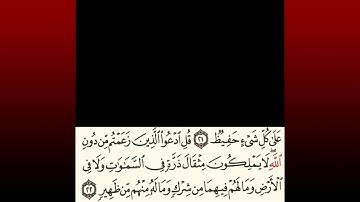 عَلَىٰ كُلِّ شَىْءٍ حَفِيظٌ ٢١ قُلِ ٱدْعُوا۟ ٱلَّذِينَ زَعَمْتُم مِّن دُونِ
ٱللَّهِ ۖ لَا يَمْلِكُونَ مِثْقَالَ ذَرَّةٍ فِى ٱلسَّمَٰوَٰتِ وَلَا فِى
ٱلْأَرْضِ وَمَا لَهُمْ فِيهِمَا مِن شِرْكٍ وَمَا لَهُۥ مِنْهُم مِّن ظَهِيرٍ ٢٢